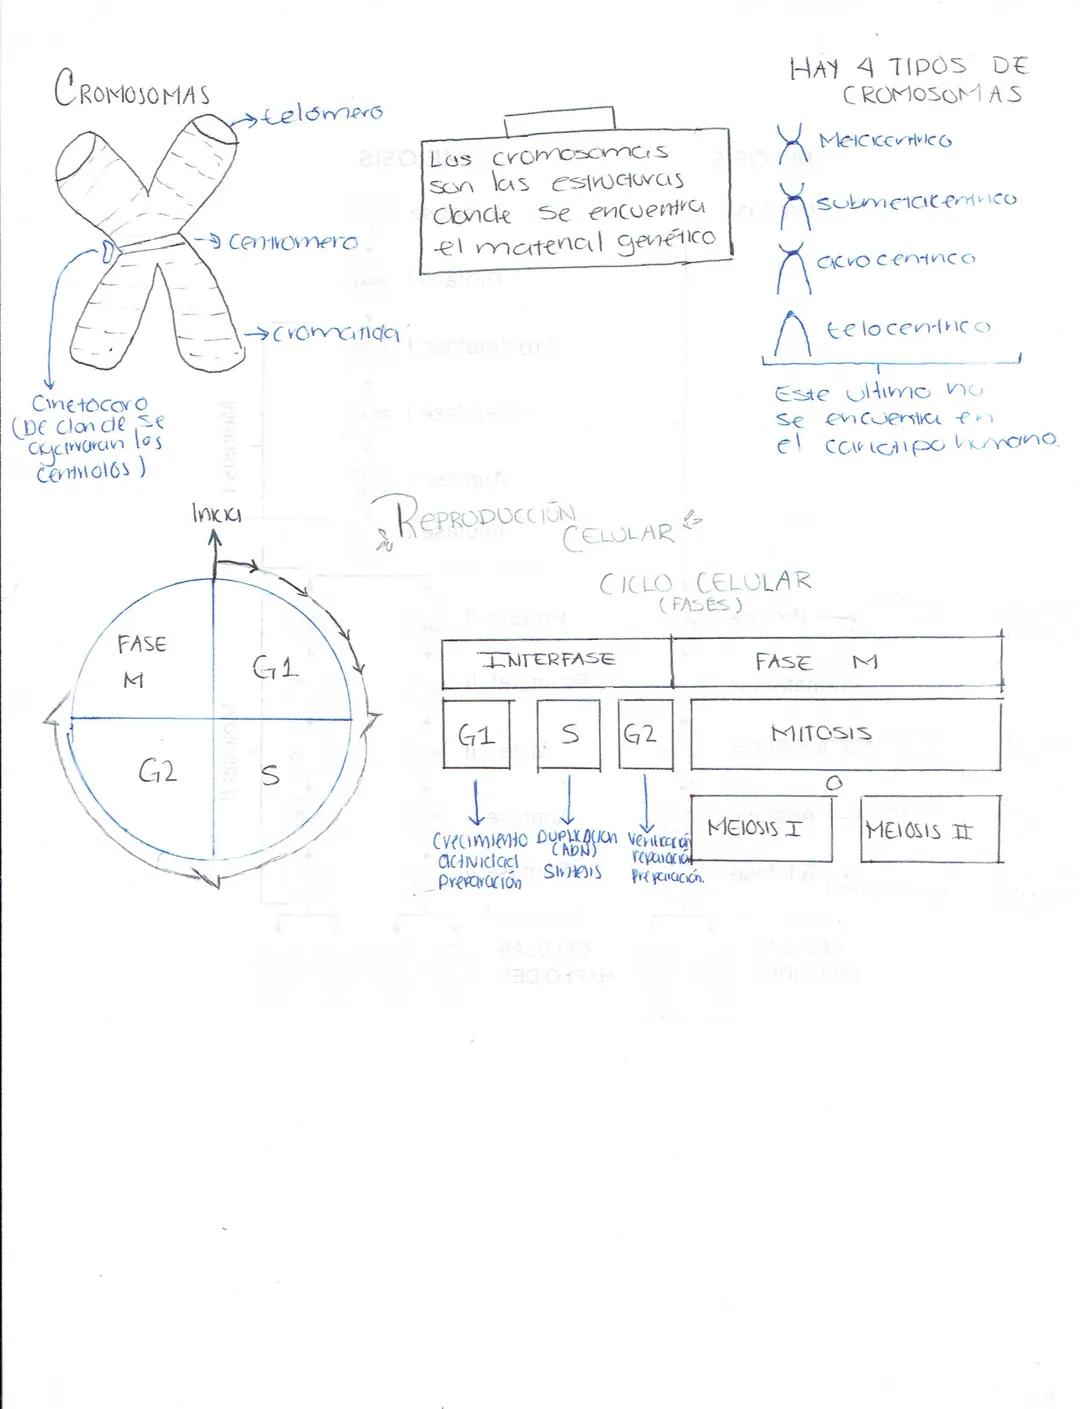 CROMOSOMAS
telómero
centromero
cromatida
Cinetócoro
(De donde se
agarraran los
centriolos)
Los cromosomas
son las estructuras
donde se encuentra
el material genético
HAY 4 TIPOS DE
CROMOSOMAS
Metacentrico
submetacentrico
acrocentrico
telocentrico
Este ultimo no
se encuentra en
el cariotipo humano.
REPRODUCCIÓN
CELULAR
Inicia
FASE
M
G1
G2
S
CICLO CELULAR
(FASES)
INTERFASE
FASE M
G1
S
G2
MITOSIS
O
MEIOSIS I
MEIOSIS II
Crecimiento
actividad
Preparación
DUPLICACION
(ADN)
SINTESIS
Verificación
reparación
preparación.